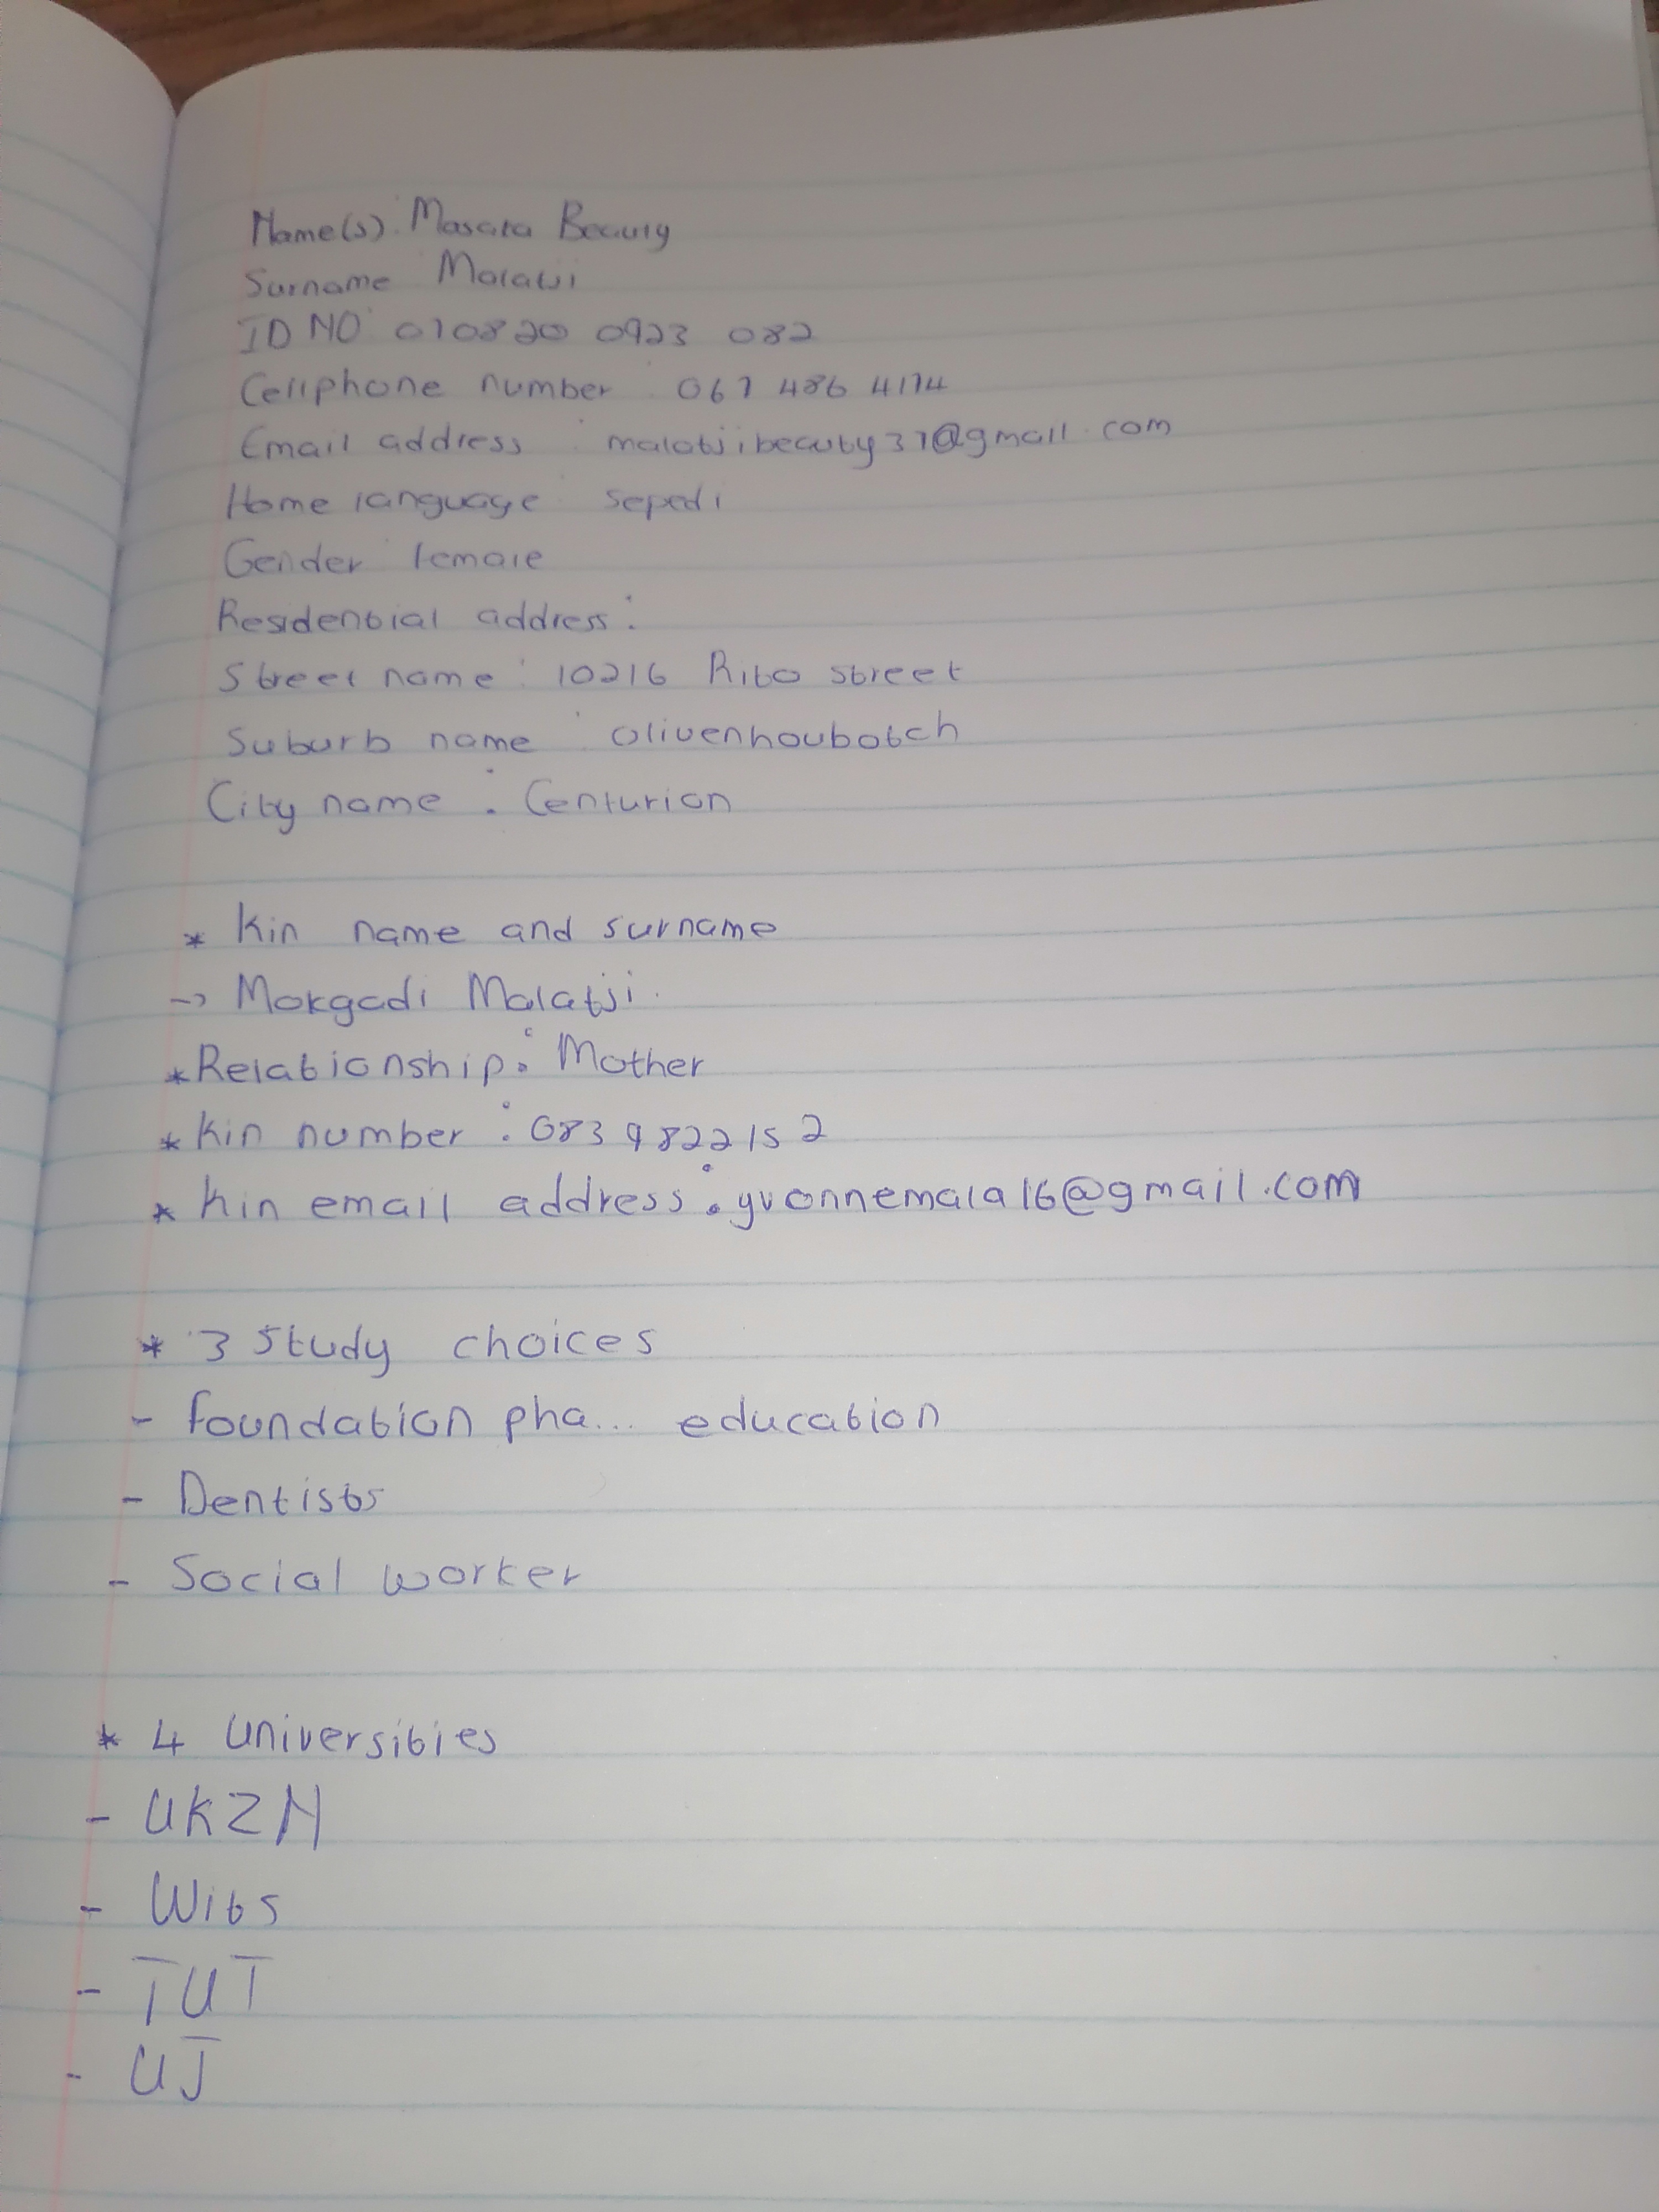 Name(s): Masata Beauty
Surname Malatji
ID NO: 010820 0923 082
Cellphone number : 067 486 4174
Email address : malatjibeauty37@gmail.com
Home language : sepedi
Gender female
Residential address:
Street name : 10216 Rito street
Suburb name : olivenhoubotch
City name : Centurion
* Kin name and surname
-> Mokgadi Malatji
* Relationship: Mother
* Kin number : 083 9822152
* Kin email address : yvonnemala16@gmail.com
* 3 Study choices
- foundation pha... education
- Dentists
- Social worker
* 4 Universities
- UKZN
- Wits
- TUT
- UJ